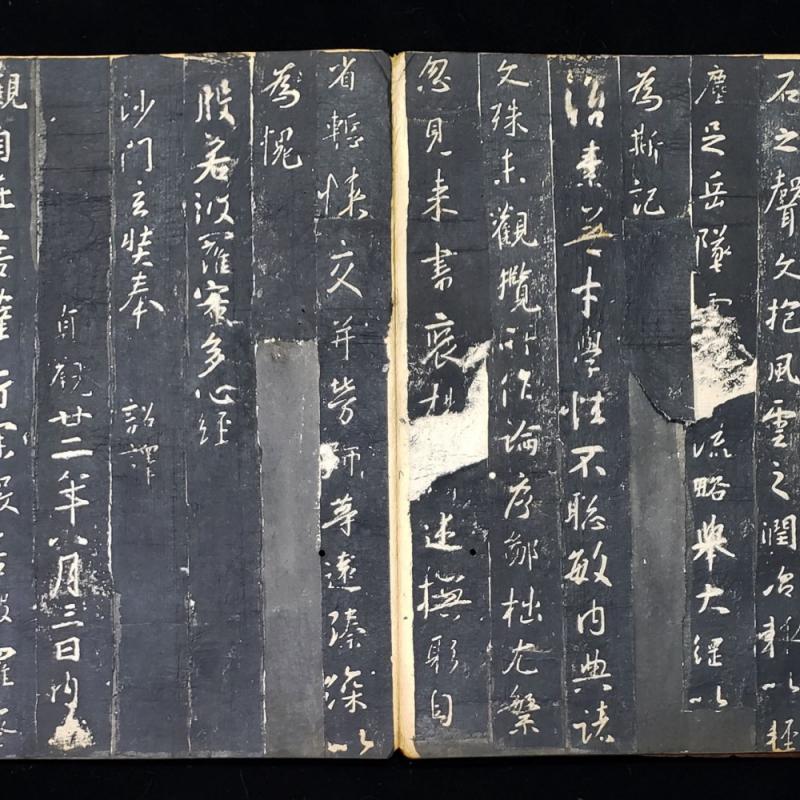 石之聲文抱風雲之潤治輒以輕
塵足岳墜 流略舉大綱以
為斯記
治素無才學性不聰敏內典諸
文殊未觀攬所作論序鄙拙尤繁
忽見來書褒 述撫躬自
省慙悚交并勞師等遠臻深以
為愧
般若波羅蜜多心經
沙門玄奘奉 詔譯
貞觀廿二年八月三日內
觀自在菩薩行深般若波羅蜜